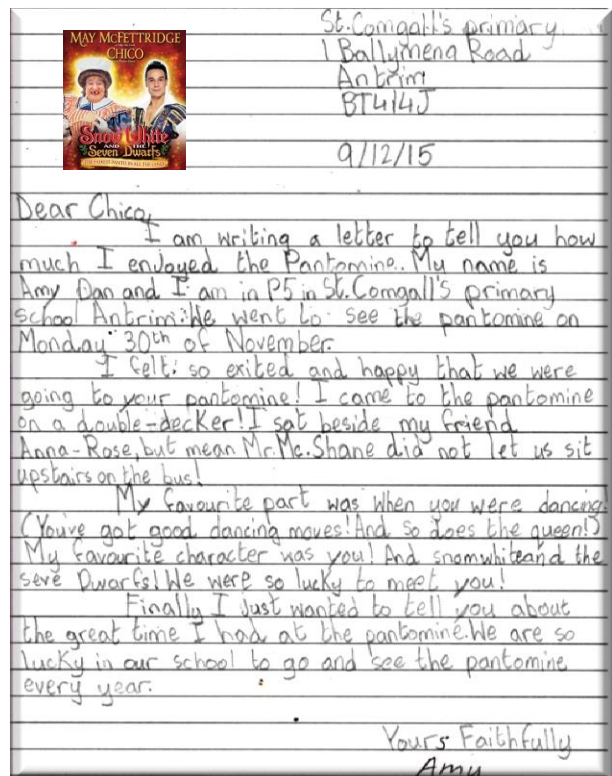 MAY MCFETTRIDGE
CHICO
Snow White
AND THE
Seven Dwarfs
St. Comgall's primary
1 Ballymena Road
Antrim
BT41 4J
9/12/15
Dear Chico,
I am writing a letter to tell you how
much I enjoyed the Pantomine.. My name is
Amy Dan and I am in P5 in St. Comgall's primary
school Antrim. We went to see the pantomine on
Monday 30th of November.
I felt so exited and happy that we were
going to your pantomine! I came to the pantomine
on a double-decker! I sat beside my friend
Anna-Rose, but mean Mr. Mc. Shane did not let us sit
upstairs on the bus!
My favourite part was when you were dancing.
(You've got good dancing moves! And so does the queen!)
My favourite character was you! And snomwhite and the
seve Dwarfs! We were so lucky to meet you!
Finally I just wanted to tell you about
the great time I had at the pantomine. We are so
lucky in our school to go and see the pantomine
every year.
Yours Faithfully
Amy